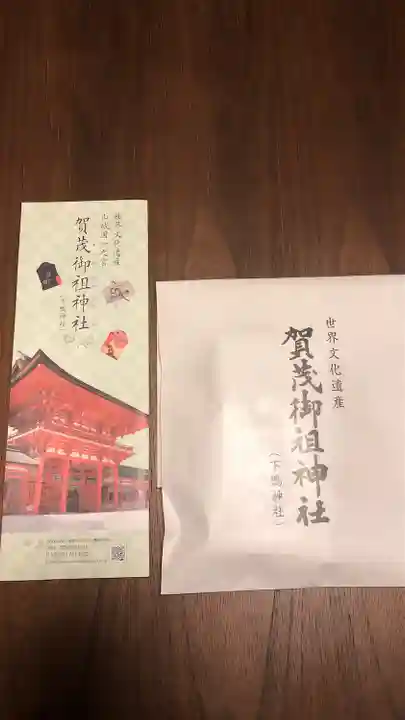 世界文化遺産
山城国一之宮
賀茂御祖神社
(下鴨神社)
世界文化遺産
賀茂御祖神社
(下鴨神社)